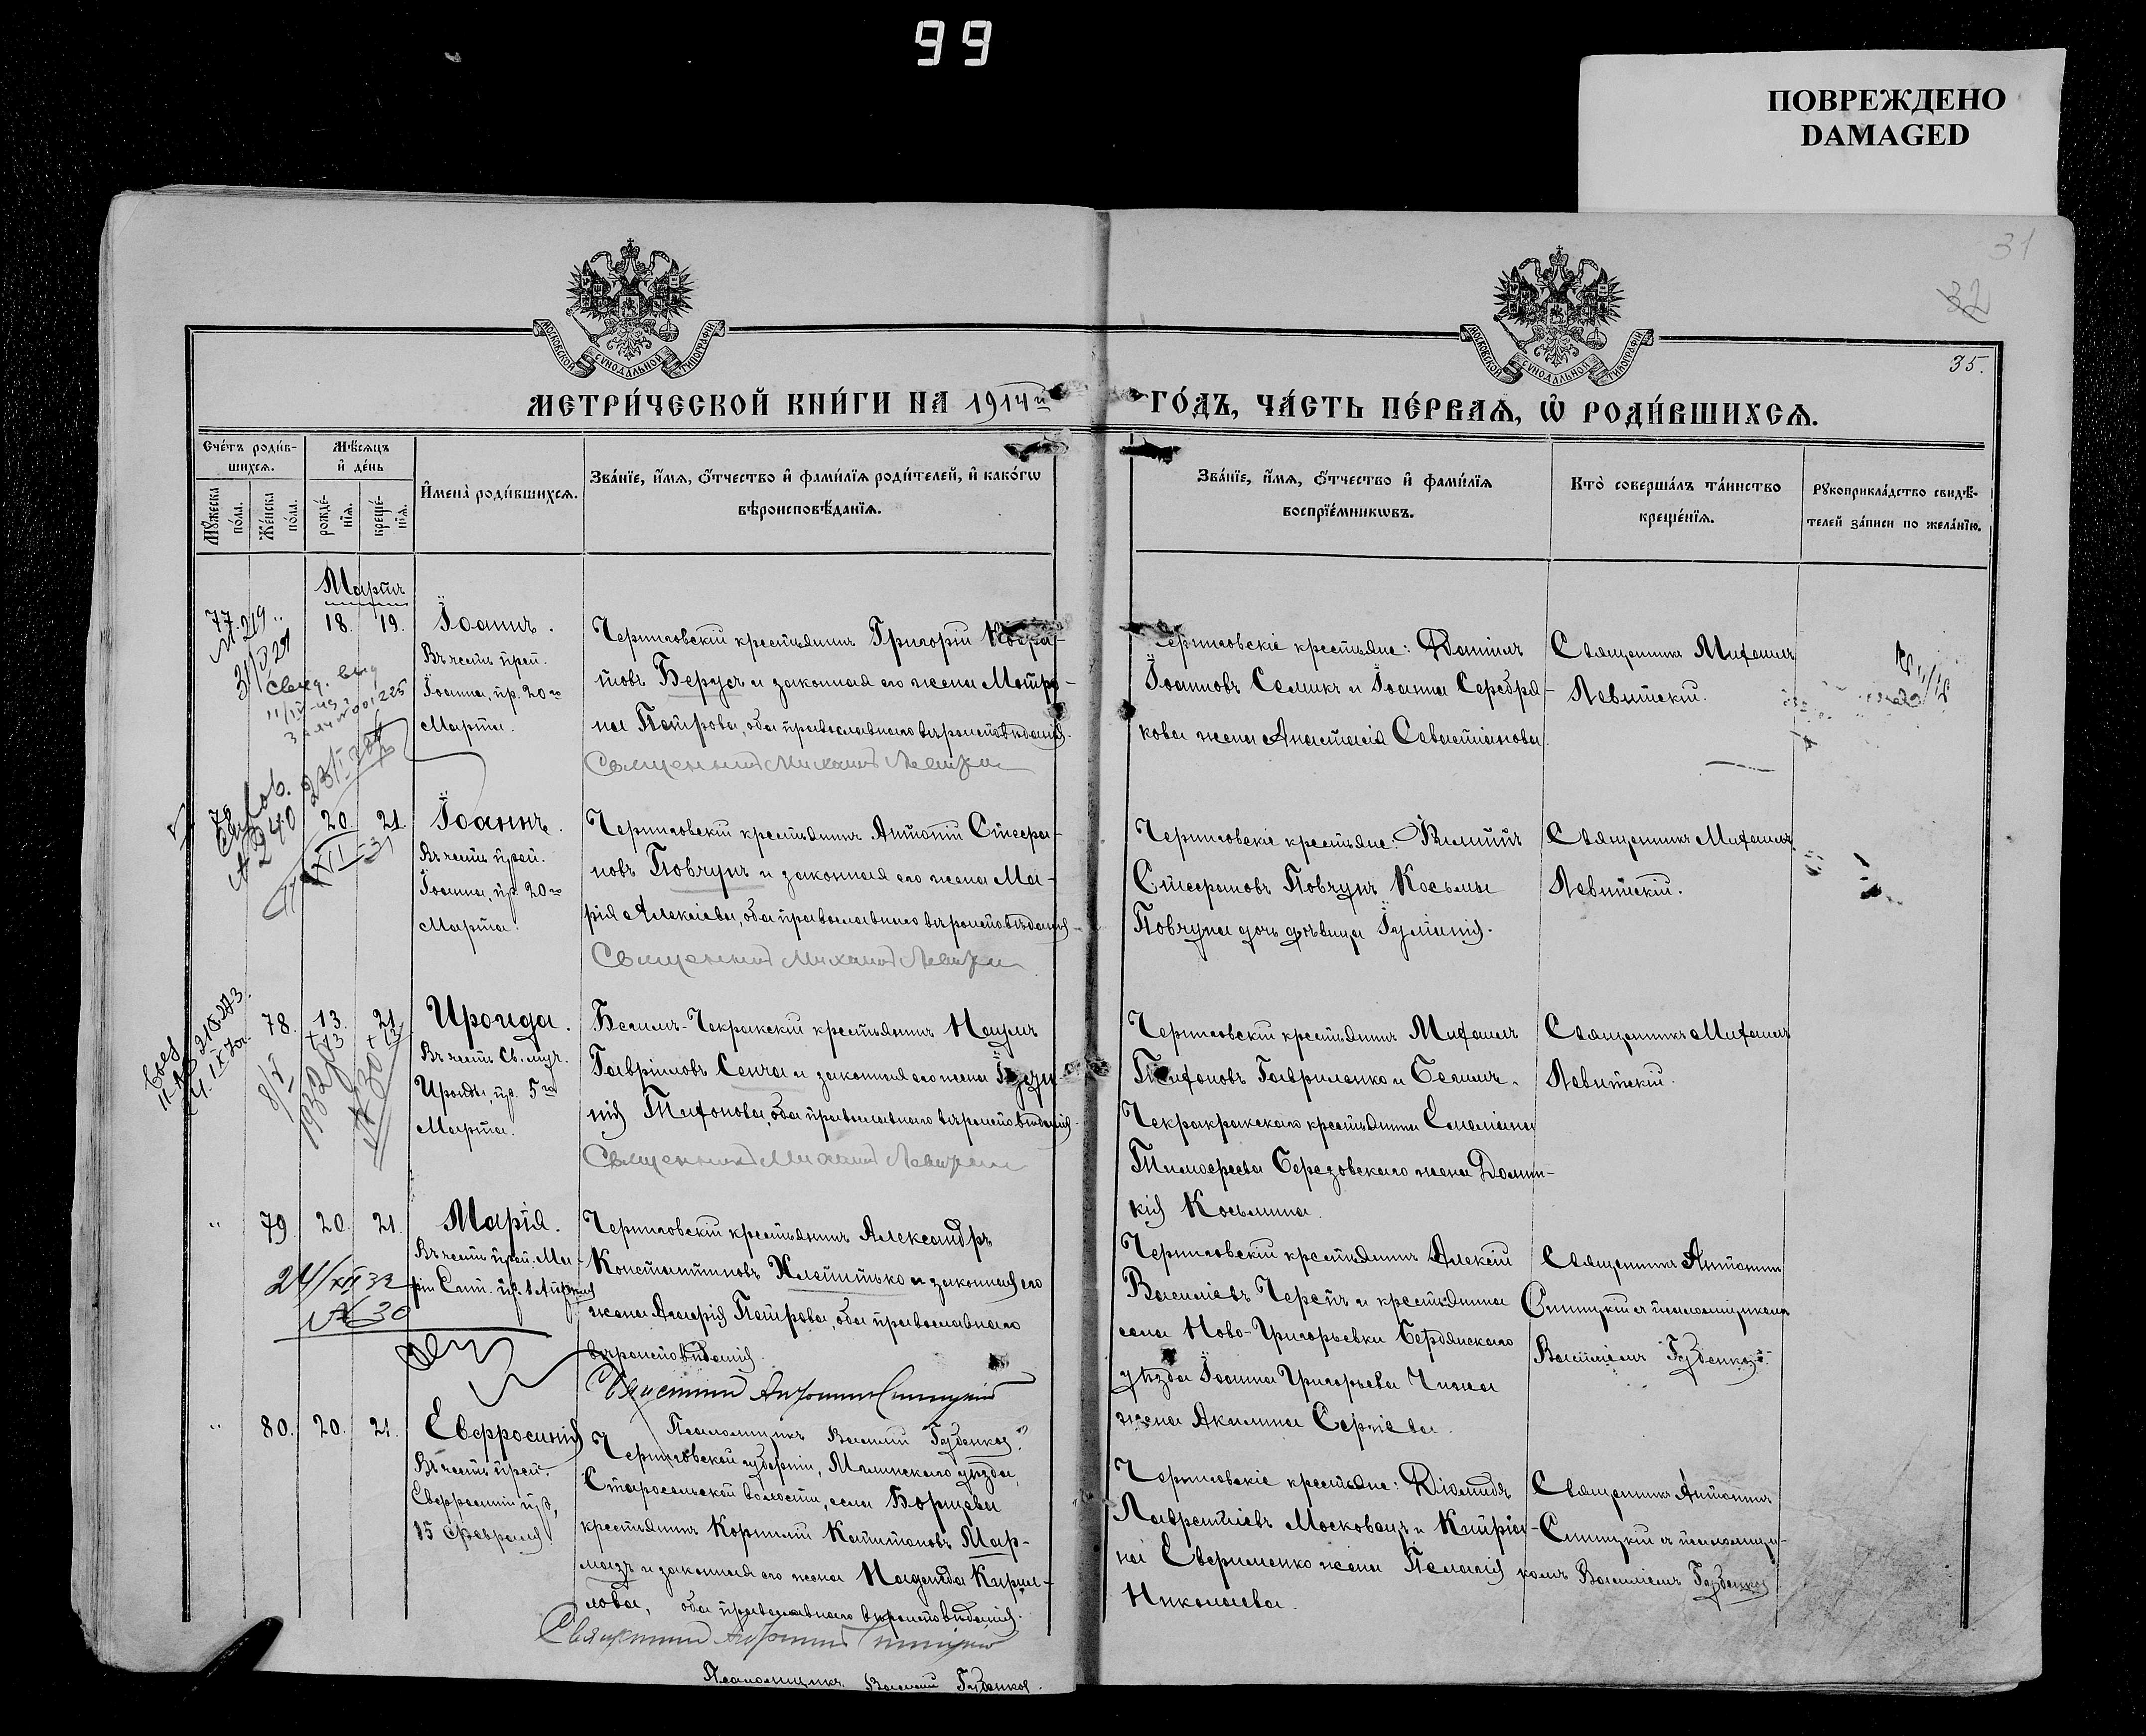 99
ПОВРЕЖДЕНО
DAMAGED
31
32
35.
МОСКОВСКОЙ СѴНОДАЛЬНОЙ ТИПОГРАФІИ
МОСКОВСКОЙ СѴНОДАЛЬНОЙ ТИПОГРАФІИ
МЕТРИ́ЧЕСКОЙ КНИ́ГИ НА 1914й
ГО́ДЪ, ЧА́СТЬ ПЕ́РВАѦ, Ѡ҆ РОДИ́ВШИХСѦ.
Сче́тъ роди́в-
шихсѧ.
Мꙋжеска по́ла.
Же́нска по́ла.
Мѣ́сѧцъ
и҆ де́нь
рожде́-
нїѧ.
креще́-
нїѧ.
И҆мена̀ роди́вшихсѧ.
Зва́нїе, и҆́мѧ, ѻ҆́тчество и҆ фами́лїѧ роди́телей, и҆ како́гѡ
вѣроисповѣ́данїѧ.
Зва́нїе, и҆́мѧ, ѻ҆́тчество и҆ фами́лїѧ
воспрїе́мникѡвъ.
Кто̀ соверша́лъ та́инство
креще́нїѧ.
Рꙋкоприкла́дство свидѣ́-
телей за́писи по жела́нїю.
Мартъ
77. 18. 19. Іоаннъ.
Въ честь преп.
Іоанна, пр. 20го
Марта.
Черниговскій крестьянинъ Григорій
товъ Берусъ и законная его жена Матро-
на Петрова, оба православнаго вѣроисповѣданія.
Священникъ Михаилъ Левитскій
Черниговскіе крестьяне: Даніилъ
Іоанновъ Семикъ и Іоанна Серебря-
кова жена Анастасія Севастіанова.
Священникъ Михаилъ
Левитскій.
№ 219
20. 21. Іоаннъ.
Въ честь преп.
Іоанна, пр. 20го
Марта.
Черниговскій крестьянинъ Антоній Стефа-
новъ Повчунъ и законная его жена Ма-
рія Алексіева, оба православнаго вѣроисповѣданія.
Священникъ Михаилъ Левитскій
Черниговскіе крестьяне: Филиппъ
Стефановъ Повчунъ Косьмы
Повчуна дочь дѣвица Іуліанія.
Священникъ Михаилъ
Левитскій.
№ 240
78. 13. 21. Ироида.
Въ честь Св. муч.
Ироиды, пр. 5го
Марта.
Бегимъ-Чекракскій крестьянинъ Наумъ
Гавріиловъ Сенча и законная его жена
нія Тихонова, оба православнаго вѣроисповѣданія.
Священникъ Михаилъ Левитскій
Черниговскій крестьянинъ Михаилъ
Тихоновъ Гавриленко и Бегимъ-
Чекракскаго крестьянина Емеліана
Тимофеева Березовскаго жена Домни-
кія Косьмина.
Священникъ Михаилъ
Левитскій.
8/X
1932
№ 30
" 79. 20. 21. Марія.
Въ честь преп. Ма-
ріи Егип. пр. 1 Апрѣля
Черниговскій крестьянинъ Александръ
Константиновъ Ильтитько и законная его
жена Марія Петрова, оба православнаго
вѣроисповѣданія.
Священникъ Антоній Синицкій
Псаломщикъ Василій Губенковъ.
Черниговскій крестьянинъ Алексій
Василіевъ Черепъ и крестьянина
села Ново-Григорьевки Бердянскаго
уѣзда Іоанна Григорьева Чижа
жена Акилина Сергіева.
Священникъ Антоній
Синицкій съ псаломщикомъ
Василіемъ Губенковъ.
24/XII 32
№ 30
" 80. 20. 21. Евфросинія
Въ честь преп.
Евфросиніи пр.
15 Февраля
Черниговской губерніи, Мглинскаго уѣзда,
Старосельской волости, села Борщева
крестьянинъ Корнилій Капитоновъ Мар-
мазъ и законная его жена Надежда Кирил-
лова, оба православнаго вѣроисповѣданія.
Священникъ Антоній Синицкій
Псаломщикъ Василій Губенков.
Черниговскіе крестьяне: Діомидъ
Лаврентіевъ Московецъ и Кипріа-
на Ефименко жена Пелагія
Николаева.
Священникъ Антоній
Синицкій съ псаломщи-
комъ Василіемъ Губенков